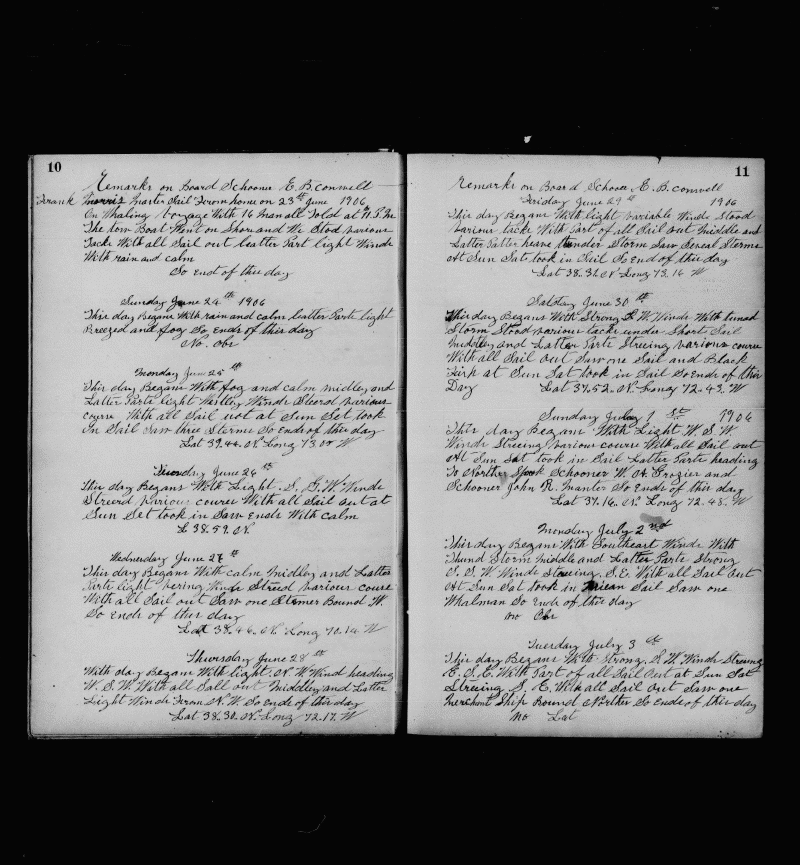 10
Remarks on Board Schooner E. B. Conwell
Frank Morris Master Sail From home on 23th June 1906
On Whaling Voyage With 16 Man all Told at N. P. M
The tow Boat Went on Shore and We Stod various
Tacks With all Sail out leatter Part light Winds
With rain and calm
So End of this day
Sunday June 24th 1906
This day Began With rain and calm leatter Parte light
Breezed and fog So Ends of this day
No. Obs
Monday June 25th
This day Began With fog and calm midley and
Latter Parte light Winds Steerd various
course With all Sail out at Sun Set took
in Sail Saw three Stermes So Ends of this day
Lat 39.44. N. Long 73.00 W
Tuesday June 26th
This day Began With Light S. W. Winds
Streerd various courses With all Sail out at
Sun Set took in Saw Ends With calm
L 38.59. N.
Wednesday June 27th
This day Began With calm midley and Latter
Parte light Winds Streed various course
With all Sail out Saw one Stemer Bound W.
So Ends of this day
Lat 38.46. N. Long 72.14 W
Thursday June 28th
With day Began With light N. W. Wind heading
W. S. W. With all Sall out Middley and Latter
Light Winds From N. W. So Ends of this day
Lat 38.30. N. Long 72.17. W
11
Remarks on Board Schooner E. B. Conwell
Friday June 29th 1906
This day Began With light variable Winds Stood
various tacks With Part of all Sail out Middle and
Latter Patter heave thunder Storm Saw Seveal Sterme
At Sun Sat took in Sail So End of this day
Lat 38.32. N. Long 73.16 W
Satday June 30th
This day Began With Strong S. W. Winds With tunad
Storm Stood various tacks under Short Sail
Middley and Latter Parte Streeing various course
With all Sail out Saw one Sail and Black
at Sun Sat took in Sail So Ends of this
Day Lat 37.52. N. Long 72.43. W
Sunday July 1st 1906
This day Began With Light W. S. W
Winds Streeing various course With all Sail out
At Sun Sat took in Sail Latter Parte heading
To Norther Spok Schooner W. A. Grozier and
Schooner John R. Manter So Ends of this day
Lat 37.16. N. Long 72.48. W
Monday July 2nd
This day Began With Southeart Winds With
Thund Storm Middle and Latter Parte Strong
S. S. W. Winds Steering S. E. With all Sail Out
At Sun Sat took in Sail Saw one
Whalman So Ends of this day
no Obs
Tuesday July 3th
This day Began With Strong S. W. Winds Streeing
E. S. E. With Part of all Sail Out at Sun Sat
Streeing S. E. With all Sail Out Saw one
Merchant Ship Bound Norther So Ends of this day
No Lat